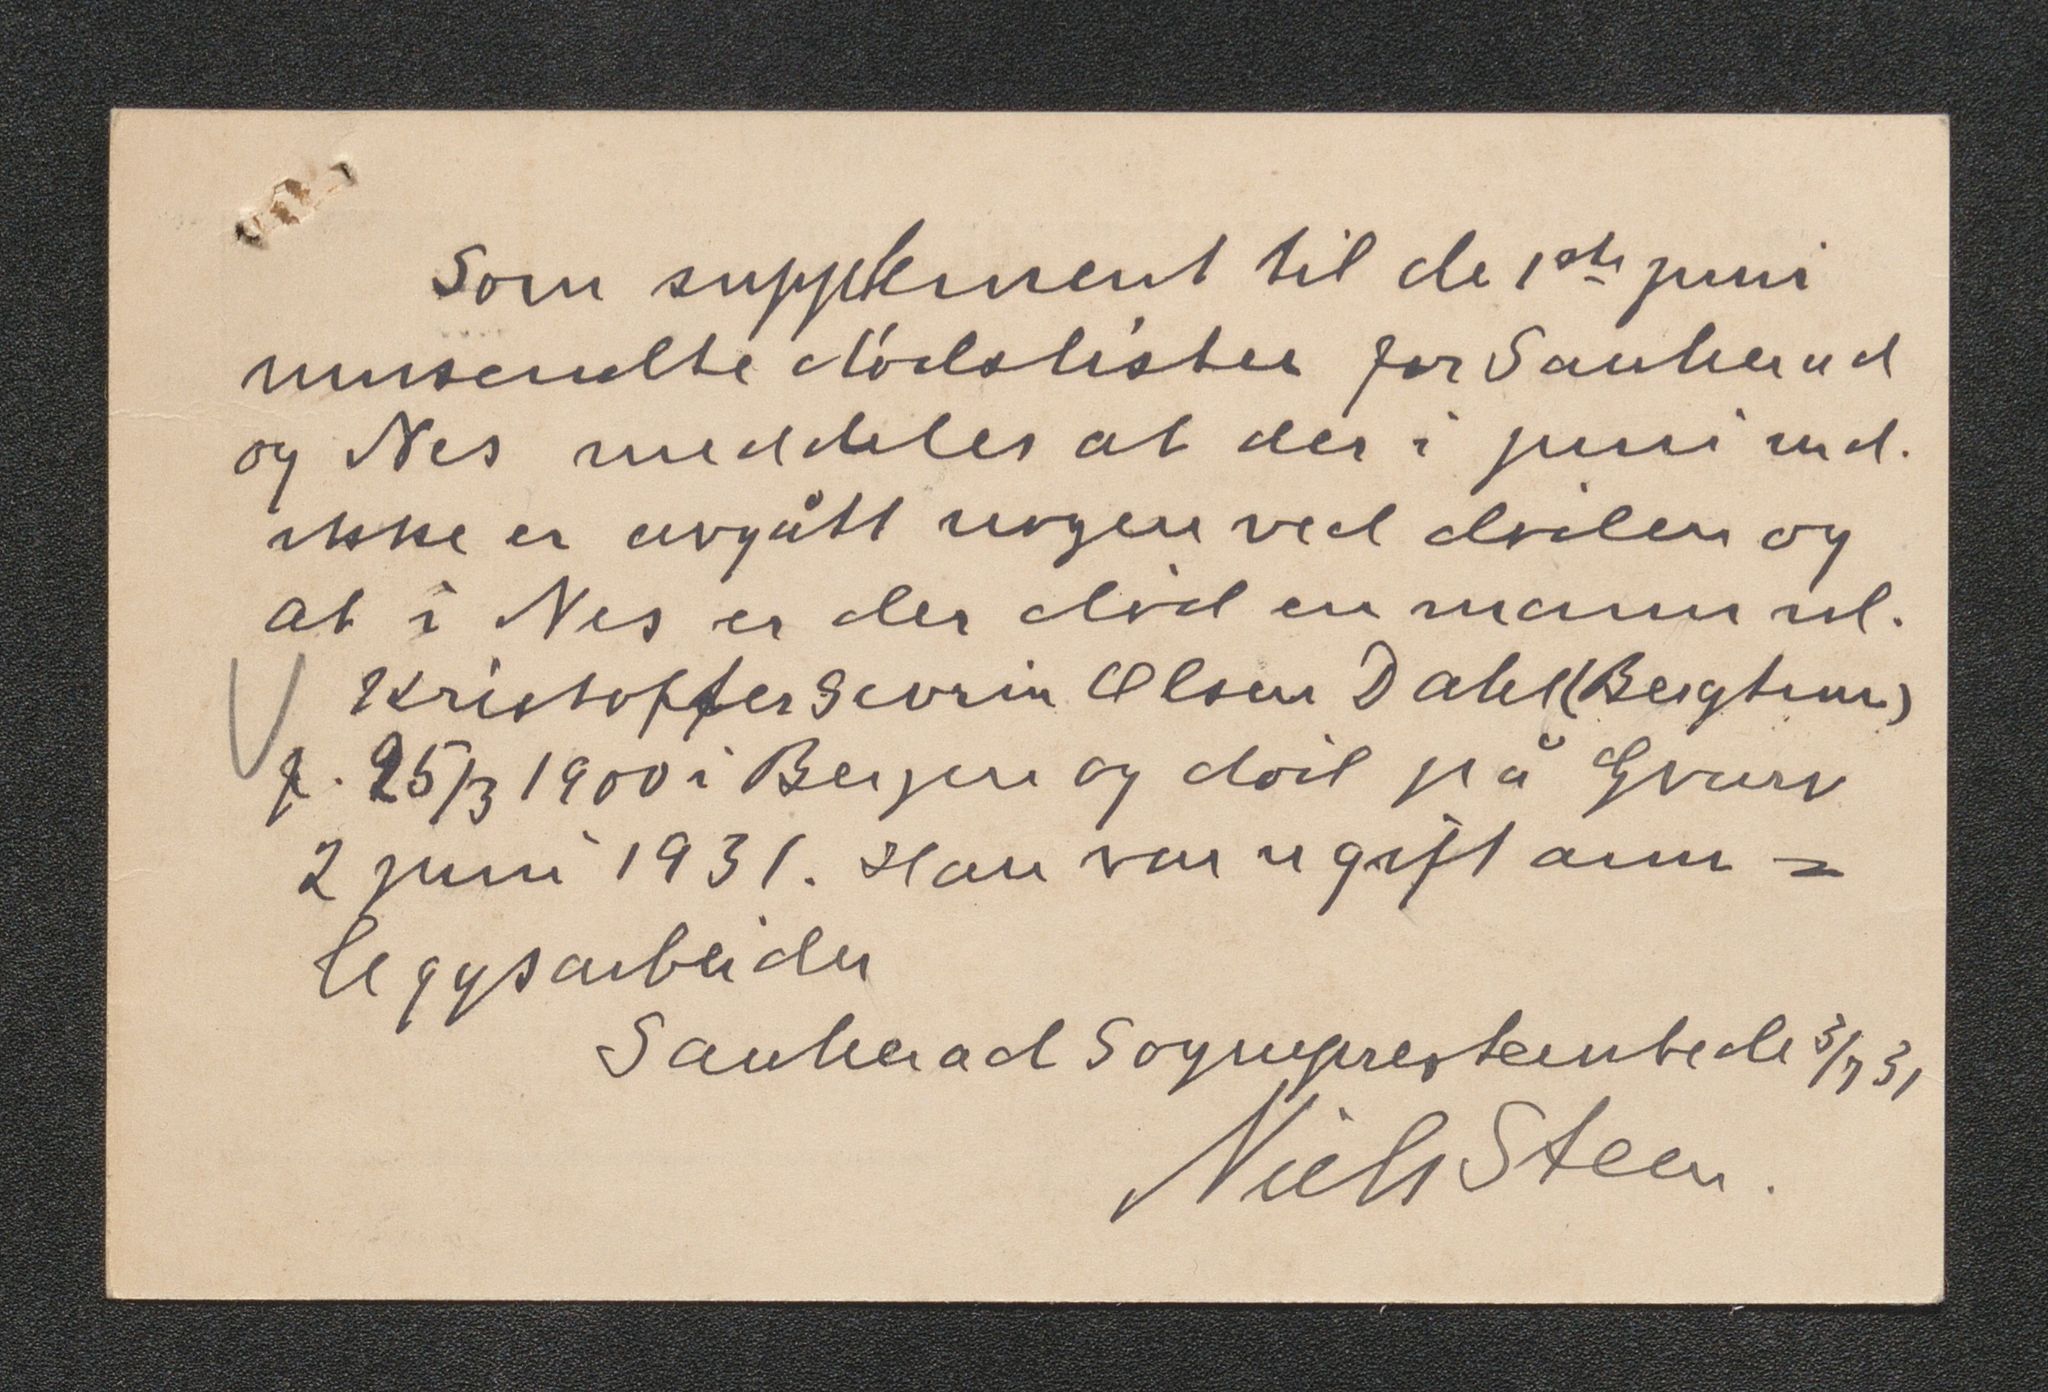 Som supplement til de 1ste juni
innsendte dödslister for Sauherad
og Nes meddeles at der i juni md.
ikke er avgått nogen ved döden og
at i Nes er der död en mann nl.
Kristoffer Sevrin Olsen Dahl (Bergtun)
f. 25/3 1900 i Bergen og död på Gvarv
2 juni 1931. Han var ugift ann=
leggsarbeider
Sauherad Sogneprestembede 3/7 31
Niels Steen.